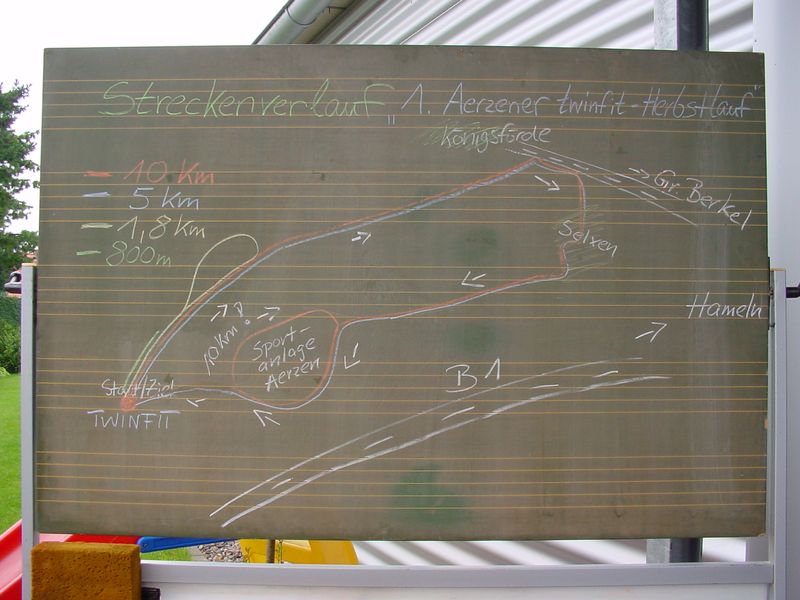 Streckenverlauf „1. Aerzener twinfit-Herbstlauf"
Königsförde
10 Km
5 Km
1,8 Km
800m
Gr. Berkel
Selxen
Hameln
10 Km?
Sport-
anlage
Aerzen
B1
Start/Ziel
TWINFIT